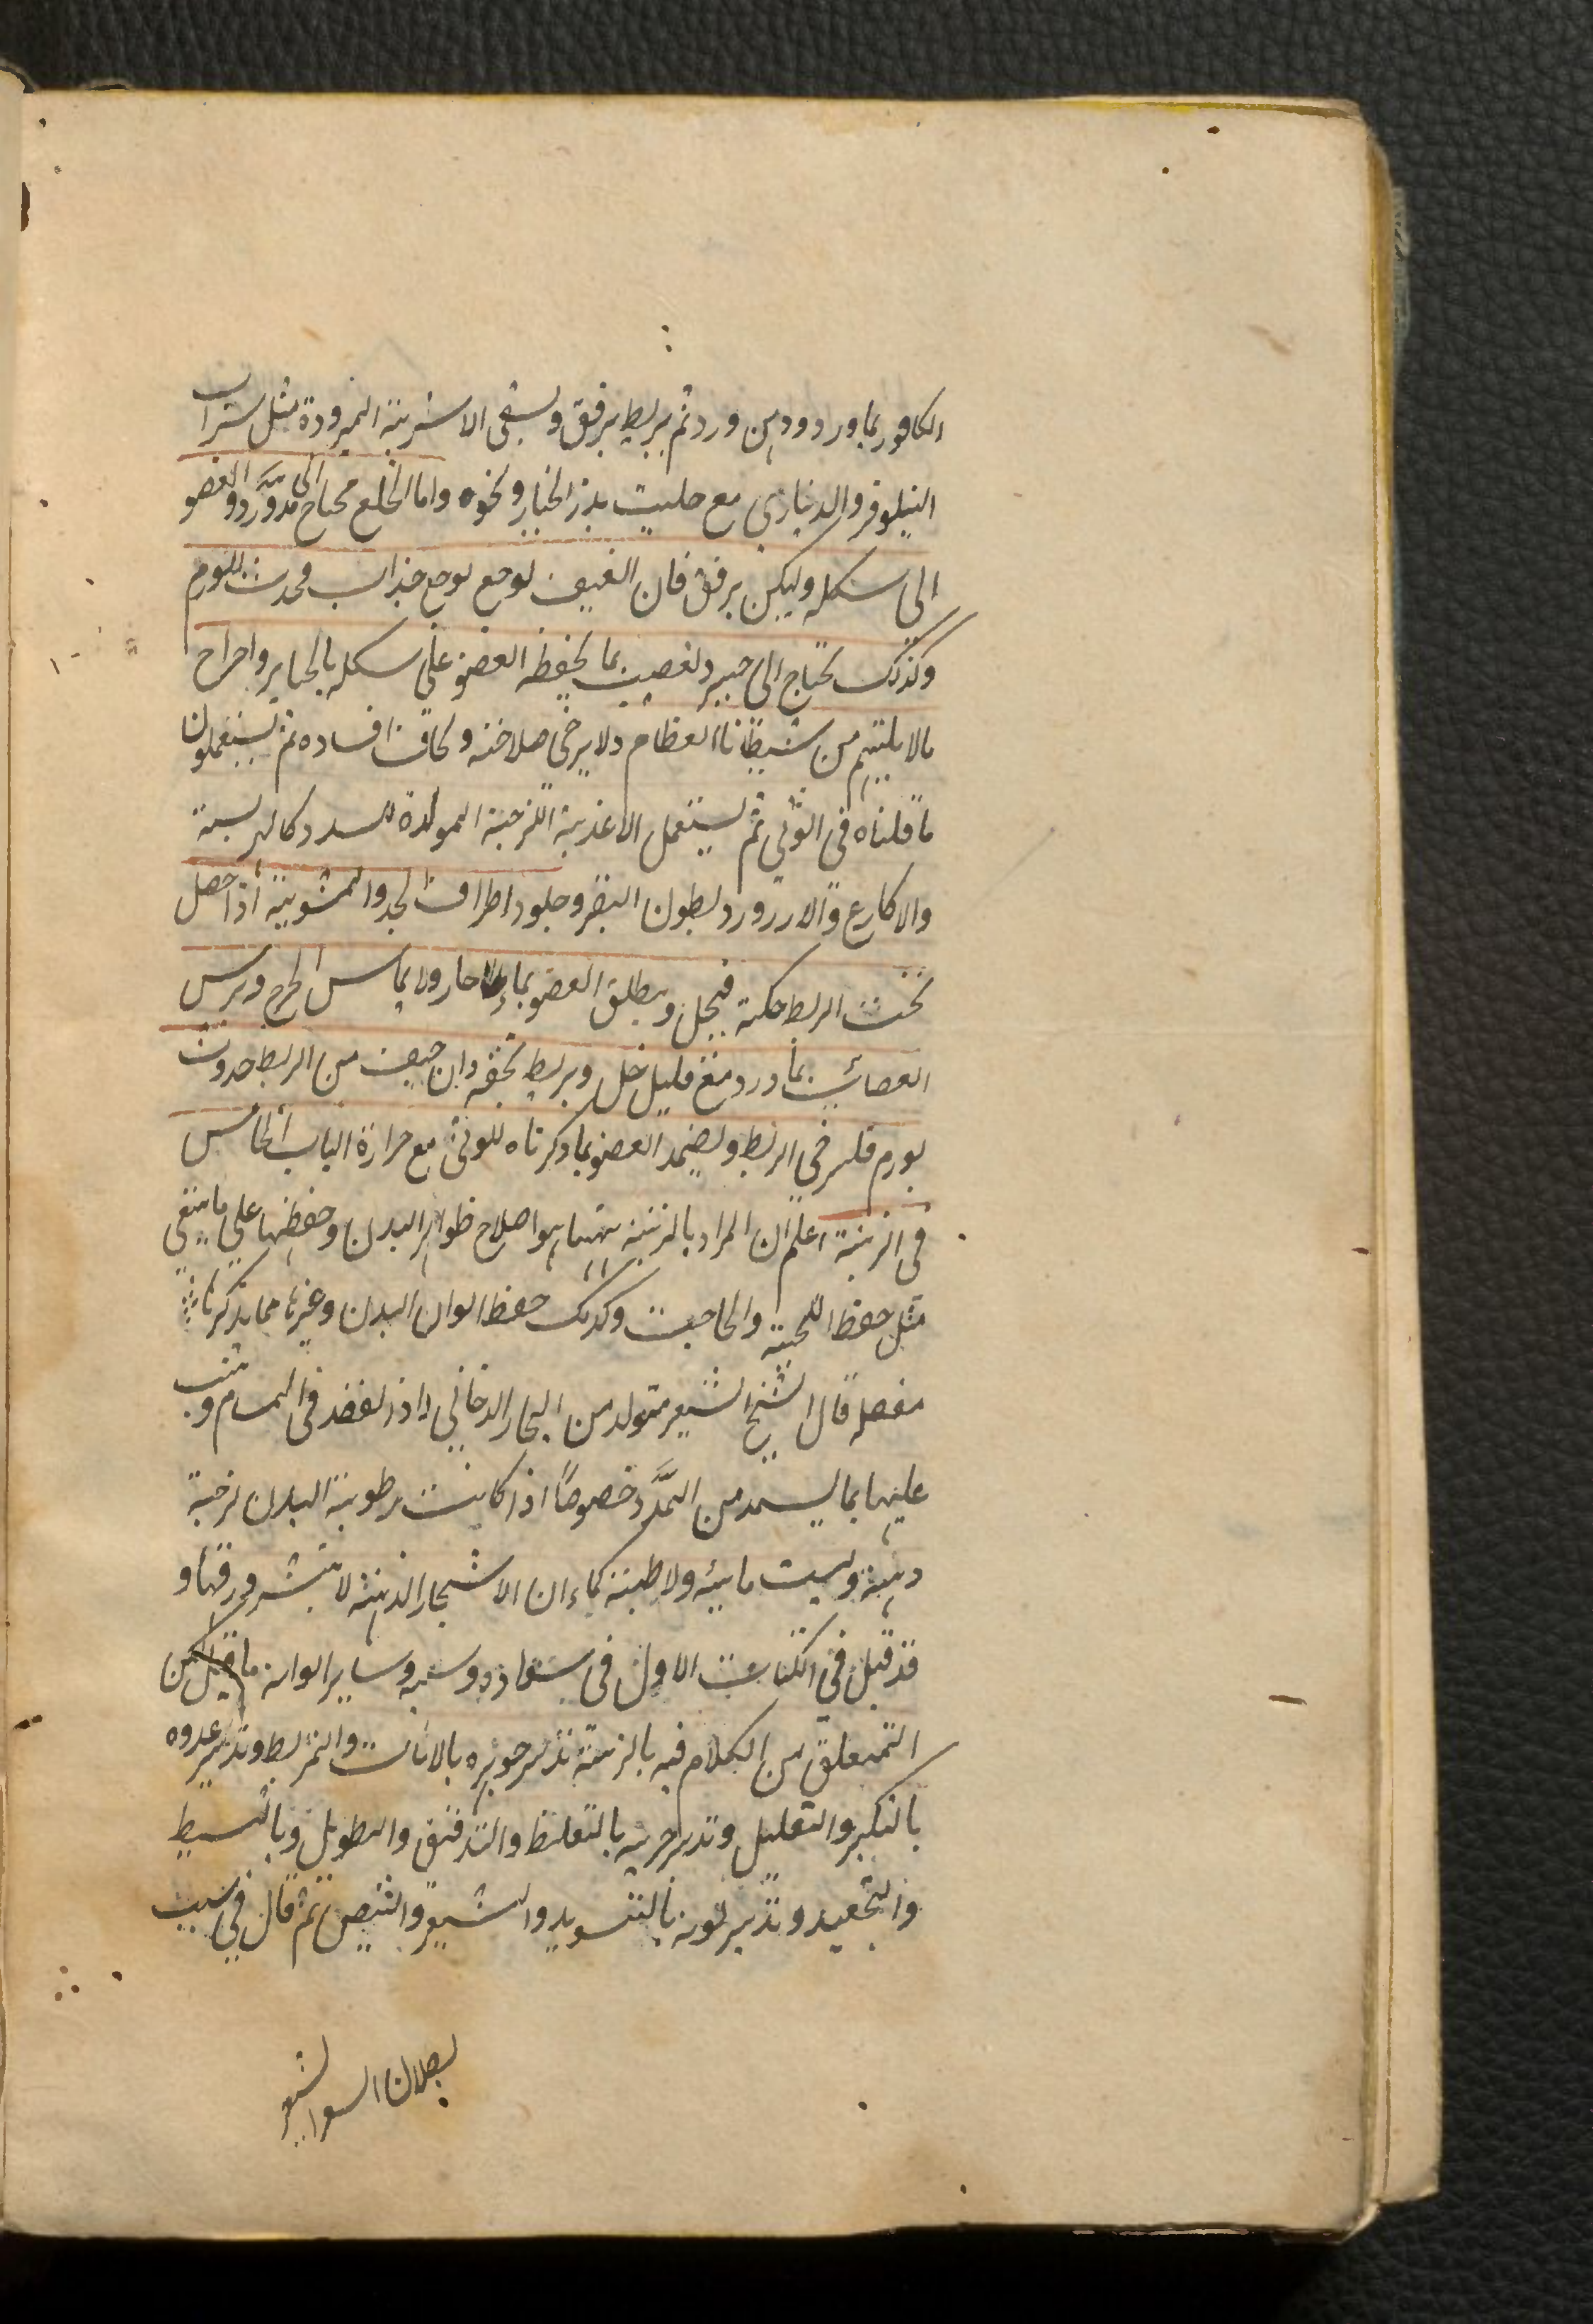 الكافور بماورد ودهن ورد ثم يربط برفق ويسقى الاشربة المبرودة مثل شراب
النيلوفر والدينارى مع حليب بذر الخيار ونحوه واما الخلع فيحتاج الى مدّ وردّ العضو
الى شكله وليكن برفق فان العنيف يوجع يوجع جذاب ويحدث للورم
وكذلك يحتاج الى جبير وتعصيب بما يحفظ العضو على شكله بالجباير واخراج
مالا يلتيم من شيظانا العظام ولا يرخى صلاحته ويخاف افساده ثم يستعملون
ما قلناه فى الوثى ثم يستعمل الاغذية اللزجة المولدة للسدد كالهريسة
والاكارع والارز وبطون البقر وجلود اطراف الجدو المشوية اذا حصل
تحت الربط حكة فيحل ويطلق العضو بماء حار ولا يماس الجرح ويرس
العصائب بماورد مع قليل خل ويربط بخفه وان خيف من الربط حدوث
بورم فليرخى الربط ويضمد العضو بما ذكرناه للوثى مع حرارة الباب الخامس
فى الزينة اعلم ان المراد بالزينة ههنا هو اصلاح ظواهر البدن وحفظها على ما ينبغى
مثل حفظ اللحية والحاجب وكذلك حفظ الوان البدن وغيرها مما يذكرها
مفصله قال الشيخ الشعر متولد من البخار الدخانى اذا انعقد فى المسام وينبت
عليها بما يستمد من المدد خصوصاً اذا كانت رطوبة البدن لزجة
دهنية وليست مائية ولا طينة كما ان الاشجار الدهنية لا ينتشر ورقها و
قد قيل فى الكتاب الاول فى سواده وشيبه وساير الوانه ما قيل لكن
المتعلق من الكلام فيه بالزينة تدبير جوهره بالانبات والتمريط وتدبير عدده
بالتكثير والتقليل وتدبير حجمه بالتغليظ والتدقيق والتطويل وبالتبسيط
والتجعيد وتدبير لونه بالتسويد والتشقير والتبييض ثم قال فى سبب
بطلان الشعر